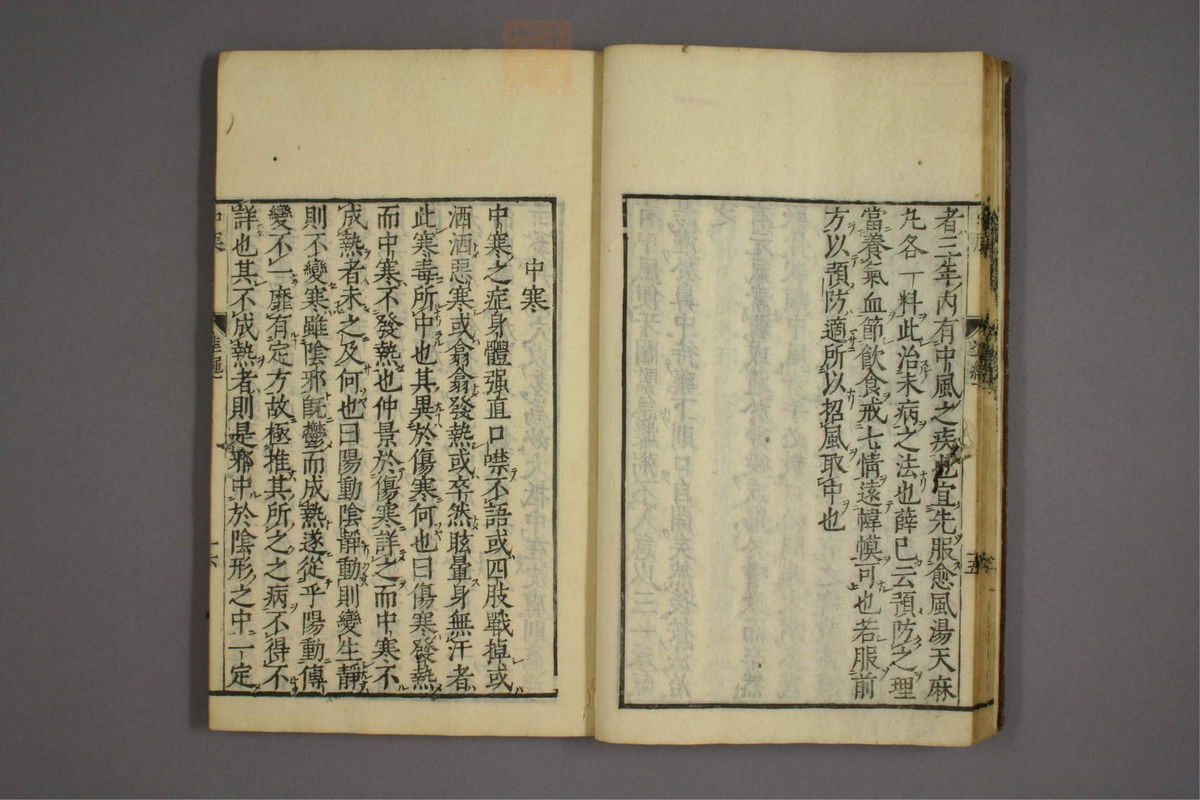 者三年內有中風之疾也宜先服愈風湯天麻
丸各一料此治未病之法也薛己云預防之理
當養氣血節飲食戒七情遠幃幙可也若服前
方以預防適所以招風取中也
中寒
中寒之症身體强直口噤不語或四肢戰掉或
洒洒惡寒或翕翕發熱或卒然眩暈身無汗者
此寒毒所中也其異於傷寒何也曰傷寒發熱
而中寒不發熱也仲景於傷寒詳之而中寒不
成熱者未之及何也曰陽動陰靜動則變生靜
則不變寒雖陰邪旣鬱而成熱遂從乎陽動傳
變不一靡有定方故極推其所之之病不得不
詳也其不成熱者則是邪中於陰形之中一定